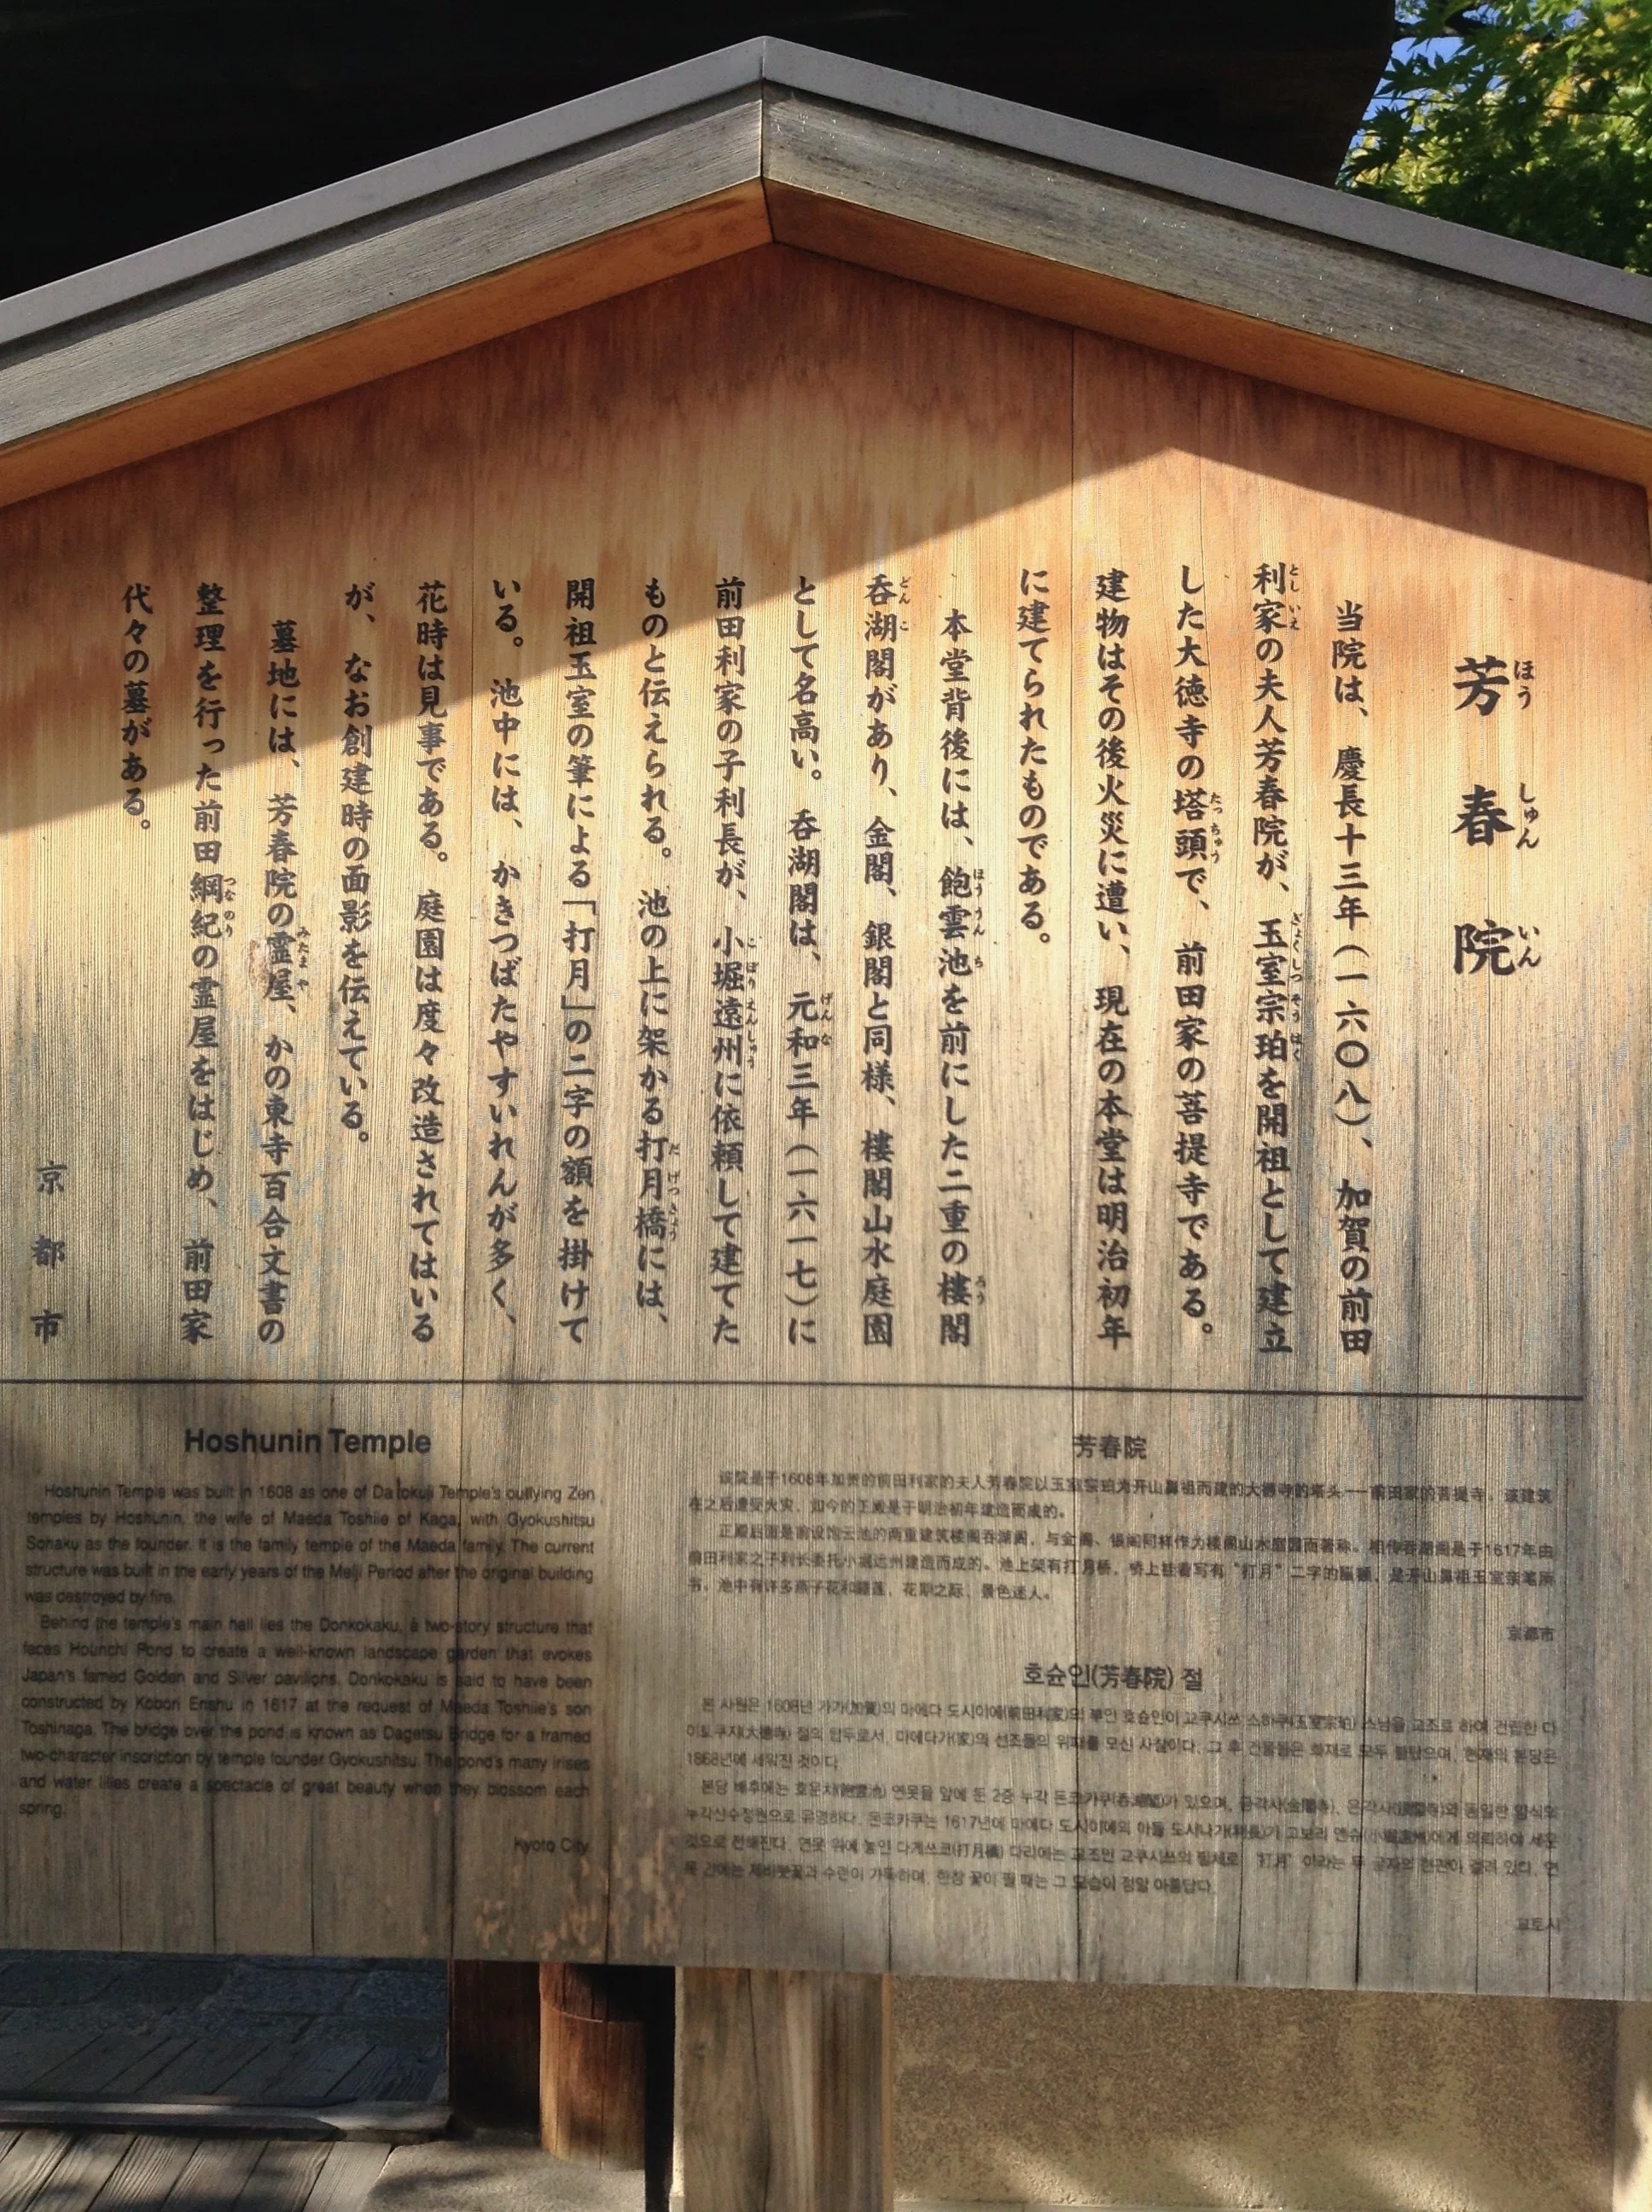 芳春院
当院は、慶長十三年（一六〇八）、加賀の前田
利家の夫人芳春院が、玉室宗珀を開祖として建立
した大徳寺の塔頭で、前田家の菩提寺である。
建物はその後火災に遭い、現在の本堂は明治初年
に建てられたものである。
本堂背後には、飽雲池を前にした二重の楼閣
呑湖閣があり、金閣、銀閣と同様、楼閣山水庭園
として名高い。呑湖閣は、元和三年（一六一七）に
前田利家の子利長が、小堀遠州に依頼して建てた
ものと伝えられる。池の上に架かる打月橋には、
開祖玉室の筆による「打月」の二字の額を掛けて
いる。池中には、かきつばたやすいれんが多く、
花時は見事である。庭園は度々改造されてはいる
が、なお創建時の面影を伝えている。
墓地には、芳春院の霊屋、かの東寺百合文書の
整理を行った前田綱紀の霊屋をはじめ、前田家
代々の墓がある。
京都市
Hoshunin Temple
Hoshunin Temple was built in 1608 as one of Daitokuji Temple's outlying Zen
temples by Hoshunin, the wife of Maeda Toshiie of Kaga, with Gyokushitsu
Sohaku as the founder. It is the family temple of the Maeda family. The current
structure was built in the early years of the Meiji Period after the original building
was destroyed by fire.
Behind the temple's main hall lies the Donkokaku, a two-story structure that
faces Hounchi Pond to create a well-known landscape garden that evokes
Japan's famed Golden and Silver pavilions. Donkokaku is said to have been
constructed by Kobori Enshu in 1617 at the request of Maeda Toshiie's son
Toshinaga. The bridge over the pond is known as Dagetsu Bridge for a framed
two-character inscription by temple founder Gyokushitsu. The pond's many irises
and water lilies create a spectacle of great beauty when they blossom each
spring.
Kyoto City
芳春院
该院是于1608年加贺的前田利家的夫人芳春院以玉室宗珀为开山鼻祖而建的大德寺的塔头——前田家的菩提寺。该建筑
在之后遭受火灾，如今的正殿是于明治初年建造而成的。
正殿后面是前设饱云池的两重建筑楼阁吞湖阁，与金阁、银阁同样作为楼阁山水庭园而著称。相传吞湖阁是于1617年由
前田利家之子利长委托小堀远州建造而成的。池上架有打月桥，桥上挂着写有“打月”二字的匾额，是开山鼻祖玉室亲笔所
书。池中有许多燕子花和睡莲，花期之际，景色迷人。
京都市
호슌인(芳春院) 절
본 사원은 1608년 가가(加賀)의 마에다 도시이에(前田利家)의 부인 호슌인이 교쿠시쓰 소하쿠(玉室宗珀) 스님을 교조로 하여 건립한 다
이토쿠지(大徳寺) 절의 탑두로서, 마에다가(家)의 선조들의 위패를 모신 사찰이다. 그 후 건물들은 화재로 모두 불탔으며, 현재의 본당은
1868년에 세워진 것이다.
본당 배후에는 호운치(飽雲池) 연못을 앞에 둔 2층 누각 돈코카쿠(呑湖閣)가 있으며, 금각사(金閣寺), 은각사(銀閣寺)와 동일한 양식의
누각산수정원으로 유명하다. 돈코카쿠는 1617년에 마에다 도시이에의 아들 도시나가(利長)가 고보리 엔슈(小堀遠州)에게 의뢰하여 세운
것으로 전해진다. 연못 위에 놓인 다게쓰쿄(打月橋) 다리에는 교조인 교쿠시쓰의 필체로 '打月' 이라는 두 글자의 현판이 걸려 있다. 연
못 간에는 제비붓꽃과 수련이 가득하며, 한창 꽃이 필 때는 그 모습이 정말 아름답다.
교토시